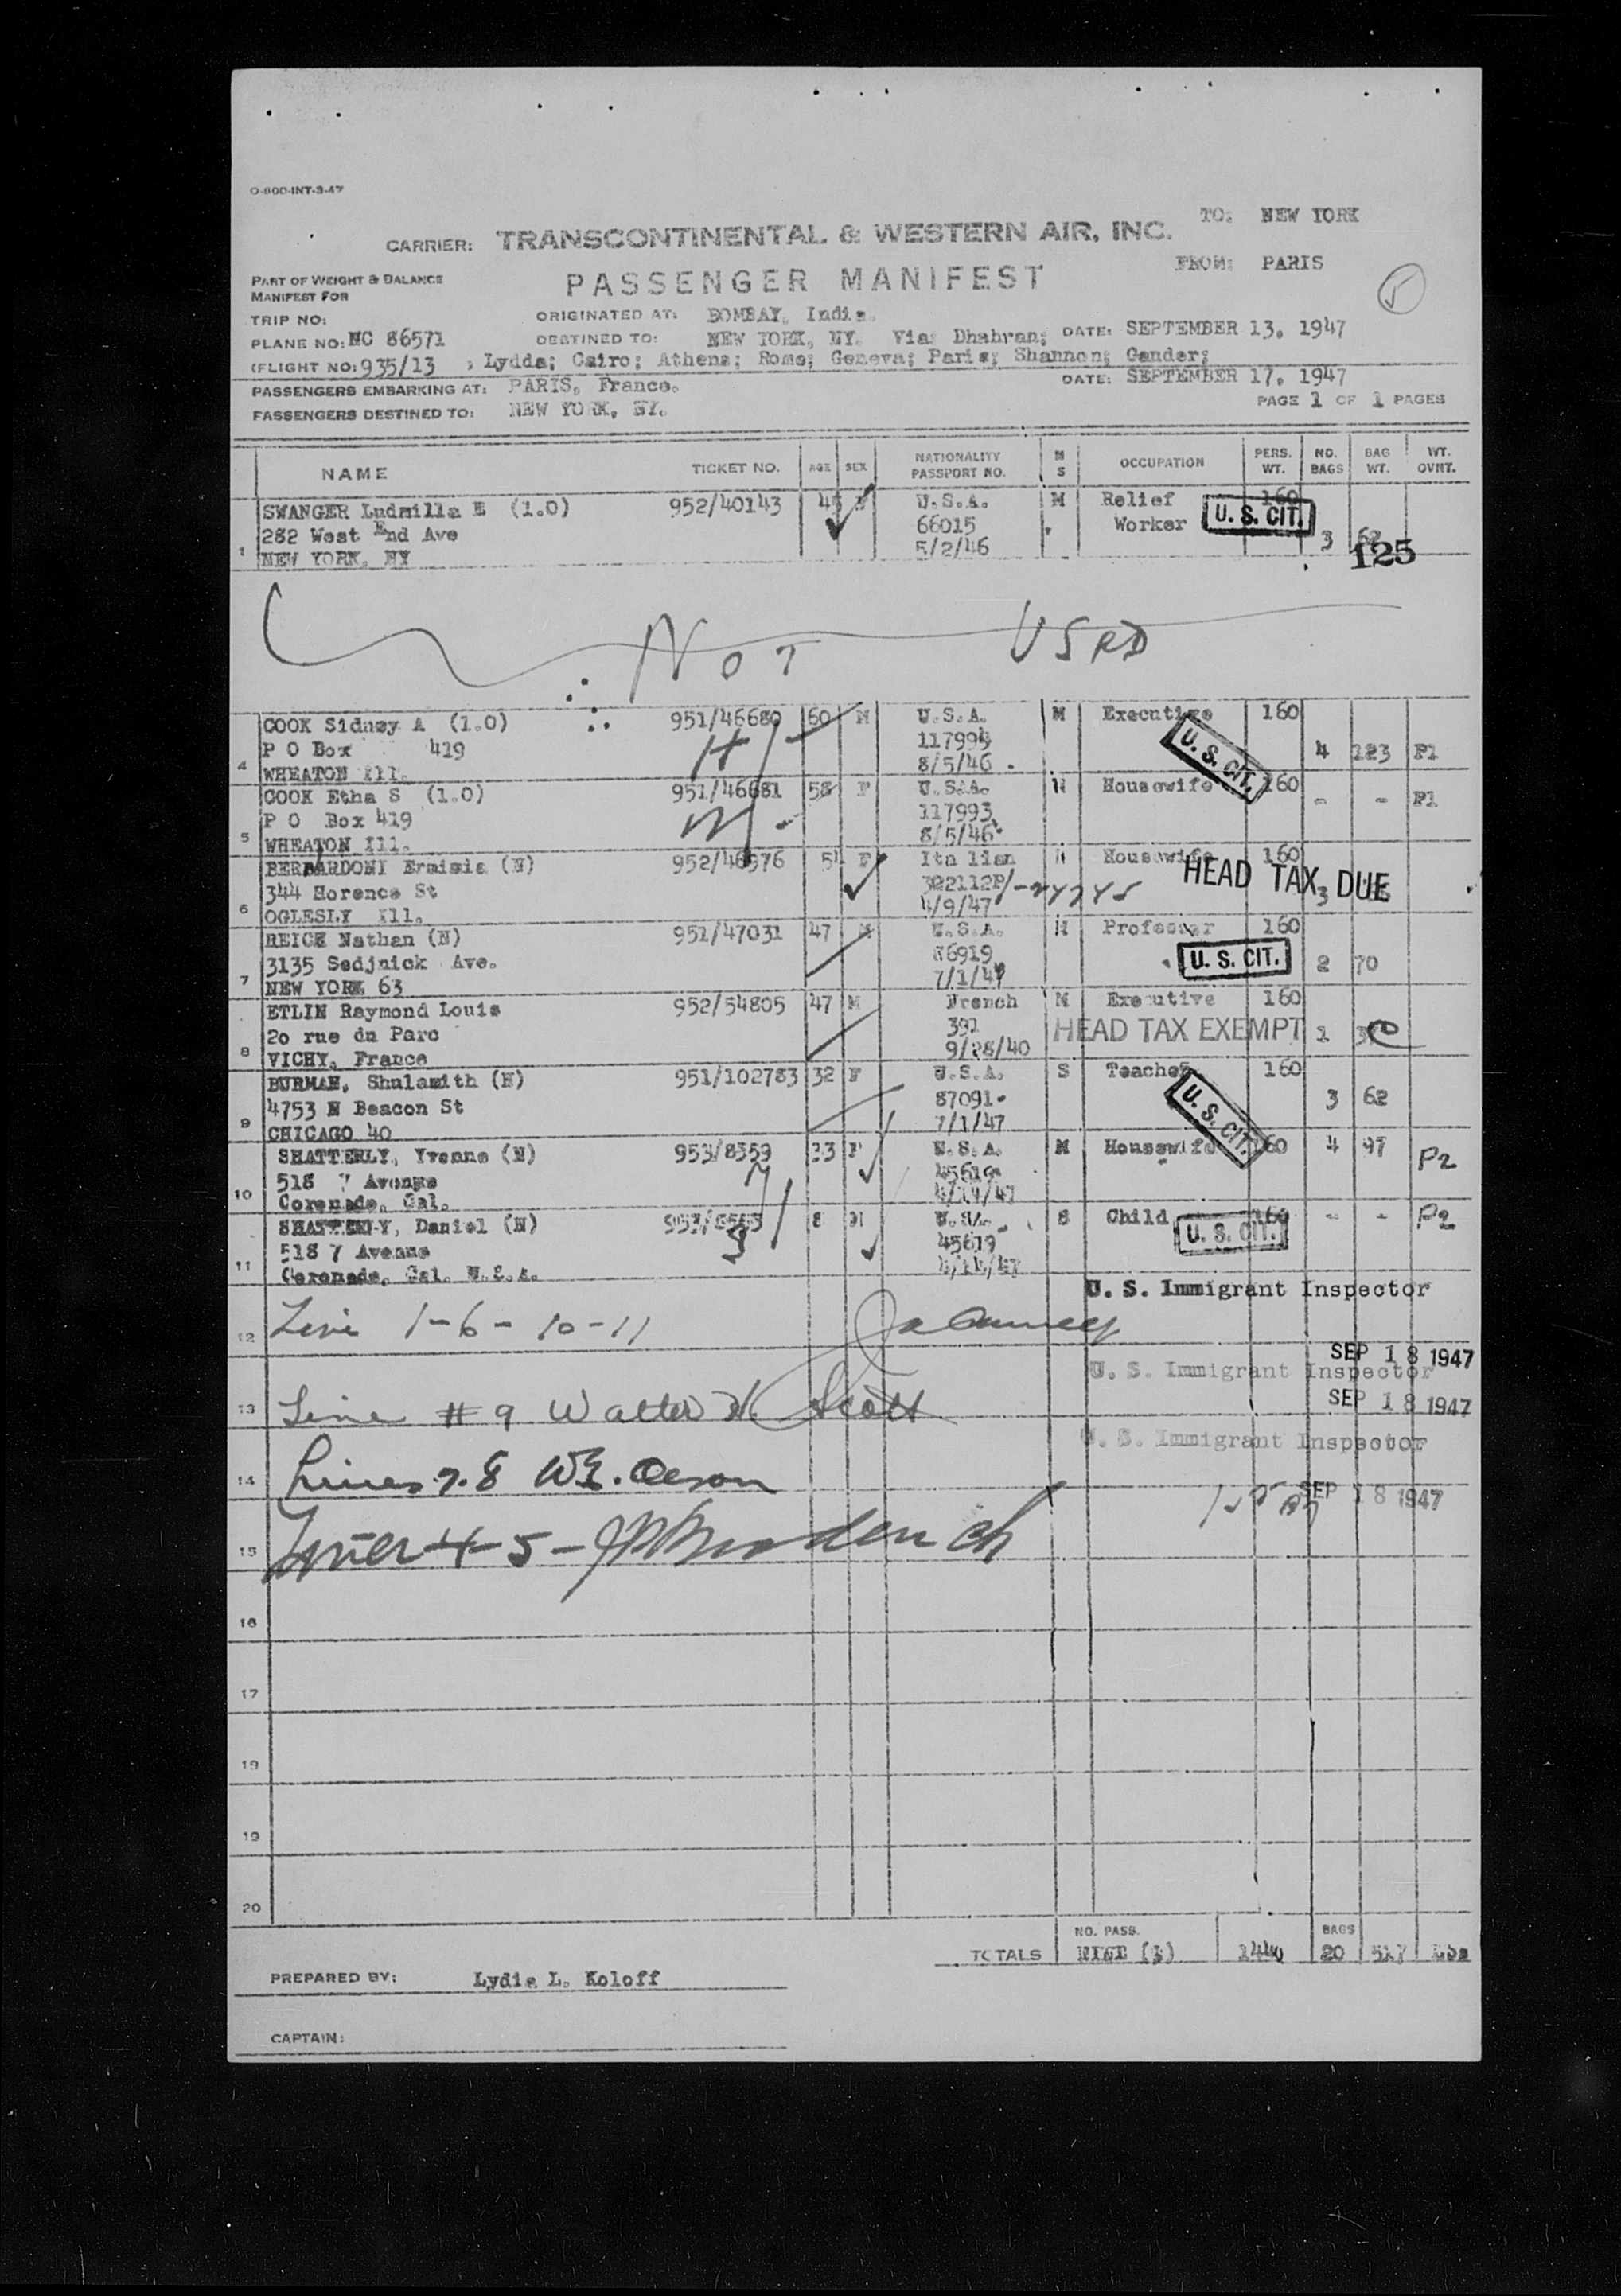 O-800-INT-3-47
TO: NEW YORK
CARRIER: TRANSCONTINENTAL & WESTERN AIR, INC.
FROM: PARIS
PART OF WEIGHT & BALANCE
MANIFEST FOR
PASSENGER MANIFEST
5
TRIP NO:
ORIGINATED AT: BOMBAY, India.
PLANE NO: NC 86571
DESTINED TO: NEW YORK, NY. Via: Dhahran; DATE: SEPTEMBER 13. 1947
(FLIGHT NO: 935/13 , Lydda; Cairo; Athens; Rome; Geneva; Paris; Shannon; Gander;
PASSENGERS EMBARKING AT: PARIS, France. DATE: SEPTEMBER 17. 1947
PASSENGERS DESTINED TO: NEW YORK, NY. PAGE 1 OF 1 PAGES
NAME TICKET NO. AGE SEX NATIONALITY PASSPORT NO. M S OCCUPATION PERS. WT. NO. BAGS BAG WT. WT. OVNT.
SWANGER Ludmilla E (1.0) 952/40143 45 F U.S.A. M Relief 160
282 West End Ave 66015 Worker U. S. CIT. 3 62
1 NEW YORK, NY 5/2/46 125
NOT USED
COOK Sidney A (1.0) 951/46680 60 M U.S.A. M Executive 160
P O Box 419 117994 U. S. CIT. 4 123 P1
4 WHEATON Ill. 8/5/46
COOK Etha S (1.0) 951/46681 58 F U.S.A. M Housewife 160
P O Box 419 117993 - - P1
5 WHEATON Ill. 8/5/46
BERNARDONI Ermisia (N) 952/46976 54 F Ita lian M Housewife 160
344 Horence St 322112P HEAD TAX DUE 3
6 OGLESLY Ill. 4/9/47
REICH Nathan (N) 951/47031 47 M U.S.A. M Professor 160
3135 Sedjnick Ave. 86919 U. S. CIT. 2 70
7 NEW YORK 63 7/1/47
ETLIN Raymond Louis 952/54805 47 M French M Executive 160
20 rue du Parc 391 HEAD TAX EXEMPT 1
8 VICHY, France 9/28/40
BURMAN, Shulamith (N) 951/102783 32 F U.S.A. S Teacher 160
4753 N Beacon St 87091 U. S. CIT. 3 62
9 CHICAGO 40 7/1/47
SHATTERLY, Yvonne (N) 953/8559 33 F U.S.A. M Housewife 160 4 97 P2
518 7 Avenue 45619
10 Coronado, Cal.
SHATTERLY, Daniel (N) 8 M U.S.A. S Child 160 - - P2
518 7 Avenue 45619 U. S. CIT.
11 Coronado, Cal. U.S.A.
U. S. Immigrant Inspector
12 Line 1-6-10-11
SEP 18 1947
U. S. Immigrant Inspector
13 Line #9 Walter H. Scott SEP 18 1947
U. S. Immigrant Inspector
14 Lines 7.8 SEP 18 1947
15 Lines 4-5-
16
17
19
19
20
TOTALS NO. PASS. NINE 1440 BAGS 20 517 Lbs
PREPARED BY: Lydia L. Koloff
CAPTAIN: